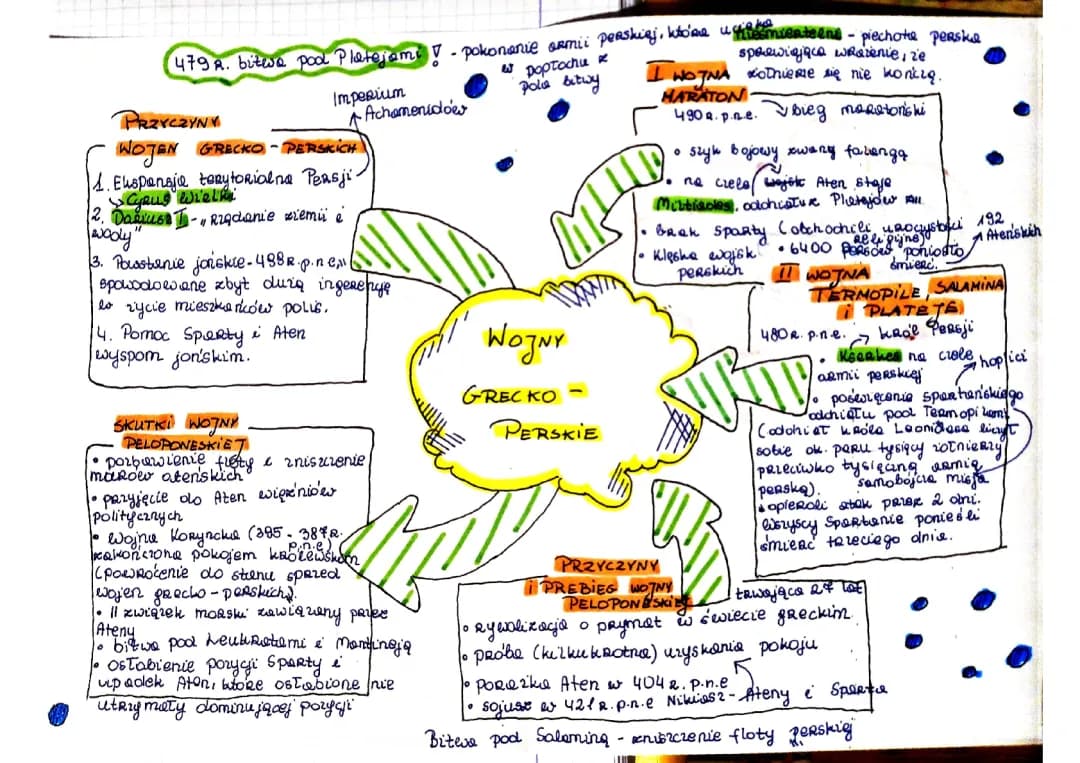 479 R. bitwa pod Platejami! - pokonanie armii perskiej, która ucieka
w popłochu z
pola bitwy
Nieśmiertelni - piechota perska
sprawiająca wrażenie, że
żołnierze się nie kończą.
Imperium
Achamenidów
PRZYCZYNY
WOJEN GRECKO - PERSKICH
1. Ekspansja terytorialna Persji
Cyrus Wielki
2. Dariusz I - "rządanie ziemii i
wody"
3. Powstanie jońskie - 498 R.p.n.e.
spowodowane zbyt dużą ingerencję
w życie mieszkańców polis.
4. Pomoc Sparty i Aten
wyspom jońskim.
I WOJNA
MARATON
490 R. p.n.e. bieg maratoński
• szyk bojowy zwany falangą
• na czele wojsk Aten staje
Miltiades, oddział z Platejów
• Brak Sparty (obchodzili uroczystości
religijne)
• Klęska wojsk
perskich
• 6400 Persów poniosło
śmierć.
192
Ateńskich
II WOJNA
TERMOPILE, SALAMINA
i PLATEJE
480 R. p.n.e. król Persji
• Kserkses na czele
armii perskiej
hoplici
• poświęcenie spartańskiego
oddziału pod Termopilami
(oddział króla Leonidasa liczył
sobie ok. paru tysięcy żołnierzy
przeciwko tysięczną armią
perską).
samobójcza misja
• opierali atak przez 2 dni.
Wszyscy Spartanie ponieśli
śmierć trzeciego dnia.
WOJNY
GRECKO -
PERSKIE
SKUTKI WOJNY
PELOPONESKIEJ
• pozbawienie floty i zniszczenie
murów ateńskich
• przyjęcie do Aten więźniów
politycznych
• Wojna Koryncka (395 - 387 R.
p.n.e)
zakończona pokojem królewskim
(powrócenie do stanu sprzed
wojen grecko - perskich).
• II związek morski zawiązany przez
Ateny
• bitwa pod Leuktrami i Mantineją
• osłabienie pozycji Sparty i
upadek Aten, które osłabione nie
utrzymały dominującej pozycji
PRZYCZYNY
i PRZEBIEG WOJNY
PELOPONESKIEJ
trwająca 27 lat
• Rywalizacja o prymat w świecie greckim.
• próba (kilkukrotna) uzyskania pokoju
• porażka Aten w 404 R. p.n.e
• sojusz w 421 R. p.n.e Nikiasz - Ateny i Sparta
Bitwa pod Salaminą - zniszczenie floty perskiej